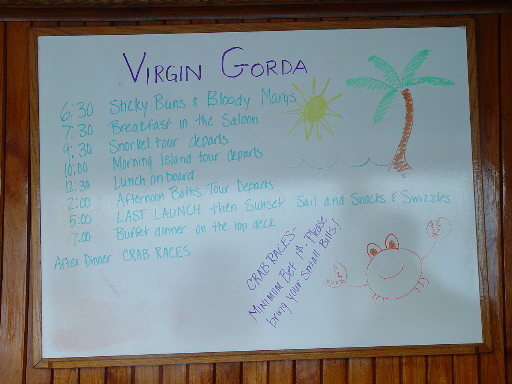 VIRGIN GORDA
6:30 Sticky Buns & Bloody Marys
7:30 Breakfast in the Saloon
9:30 Snorkel tour departs
10:00 Morning Island tour departs
12:30 Lunch on board
2:00 Afternoon Baths Tour Departs
5:00 LAST LAUNCH then Sunset Sail and Snacks & Swizzles
7:00 Buffet dinner on the top deck
After Dinner CRAB RACES
CRAB RACES-
MINIMUM Bet 1$. Please
bring your Small Bills!